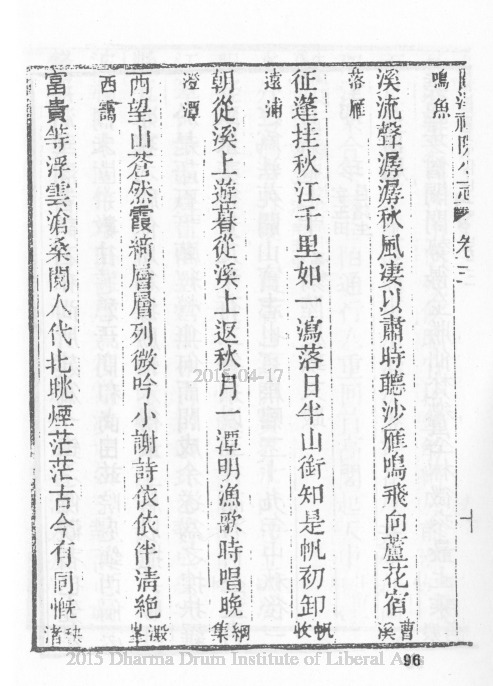 卷三
鳴魚
溪流聲潺潺秋風淒以肅時聽沙雁鳴飛向蘆花宿曹溪
落雁
征蓬挂秋江千里如一瀉落日半山銜知是帆初卸帆收
遠浦
朝從溪上遊暮從溪上返秋月一潭明漁歌時唱晚網集
澄潭
西望山蒼然霞綺層層列微吟小謝詩依依伴清絕澱峯
西靄
富貴等浮雲滄桑閱人代北眺煙茫茫古今有同慨秧渚
2015-04-17
96
2015 Dharma Drum Institute of Liberal Arts